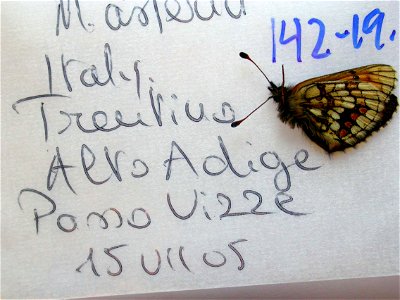 M. asteria
142-19.
Italy.
Trentino
Alto Adige
Passo Vizze
15 VII 05